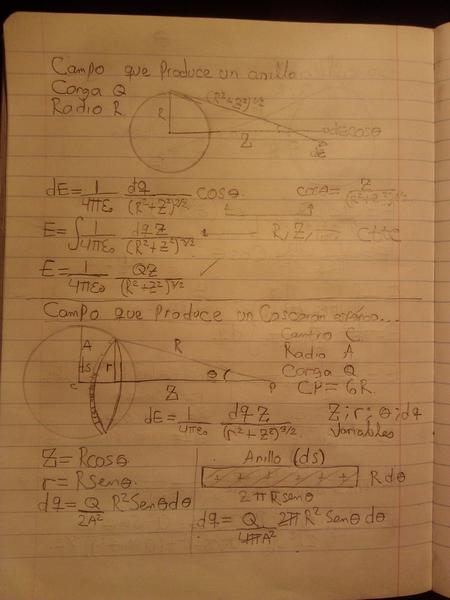 Campo que Produce un anillo
Carga Q
Radio R
(R²+Z²)^1/2
R
Z
dEcosθ
dE
dE = 1/4πε₀ dq/(R²+Z²)^2/2 cosθ
cosθ = Z/(R²+Z²)^1/2
E = ∫ 1/4πε₀ dq Z/(R²+Z²)^3/2
R, Z, Ctte
E = 1/4πε₀ QZ/(R²+Z²)^3/2 ✓
Campo que Produce un Cascaron
Centro C
Radio A
Carga Q
CP = GR
A
R
ds
r
C
Z
θ
P
dE = 1/4πε₀ dq Z/(r²+Z²)^3/2
Z; r; θ; dq
Variables
Z = Rcosθ
r = Rsenθ
dq = Q/2A² R²Senθdθ
Anillo (ds)
+ + + + + +
Rdθ
2πRsenθ
dq = Q/4πA² 2πR²Senθdθ